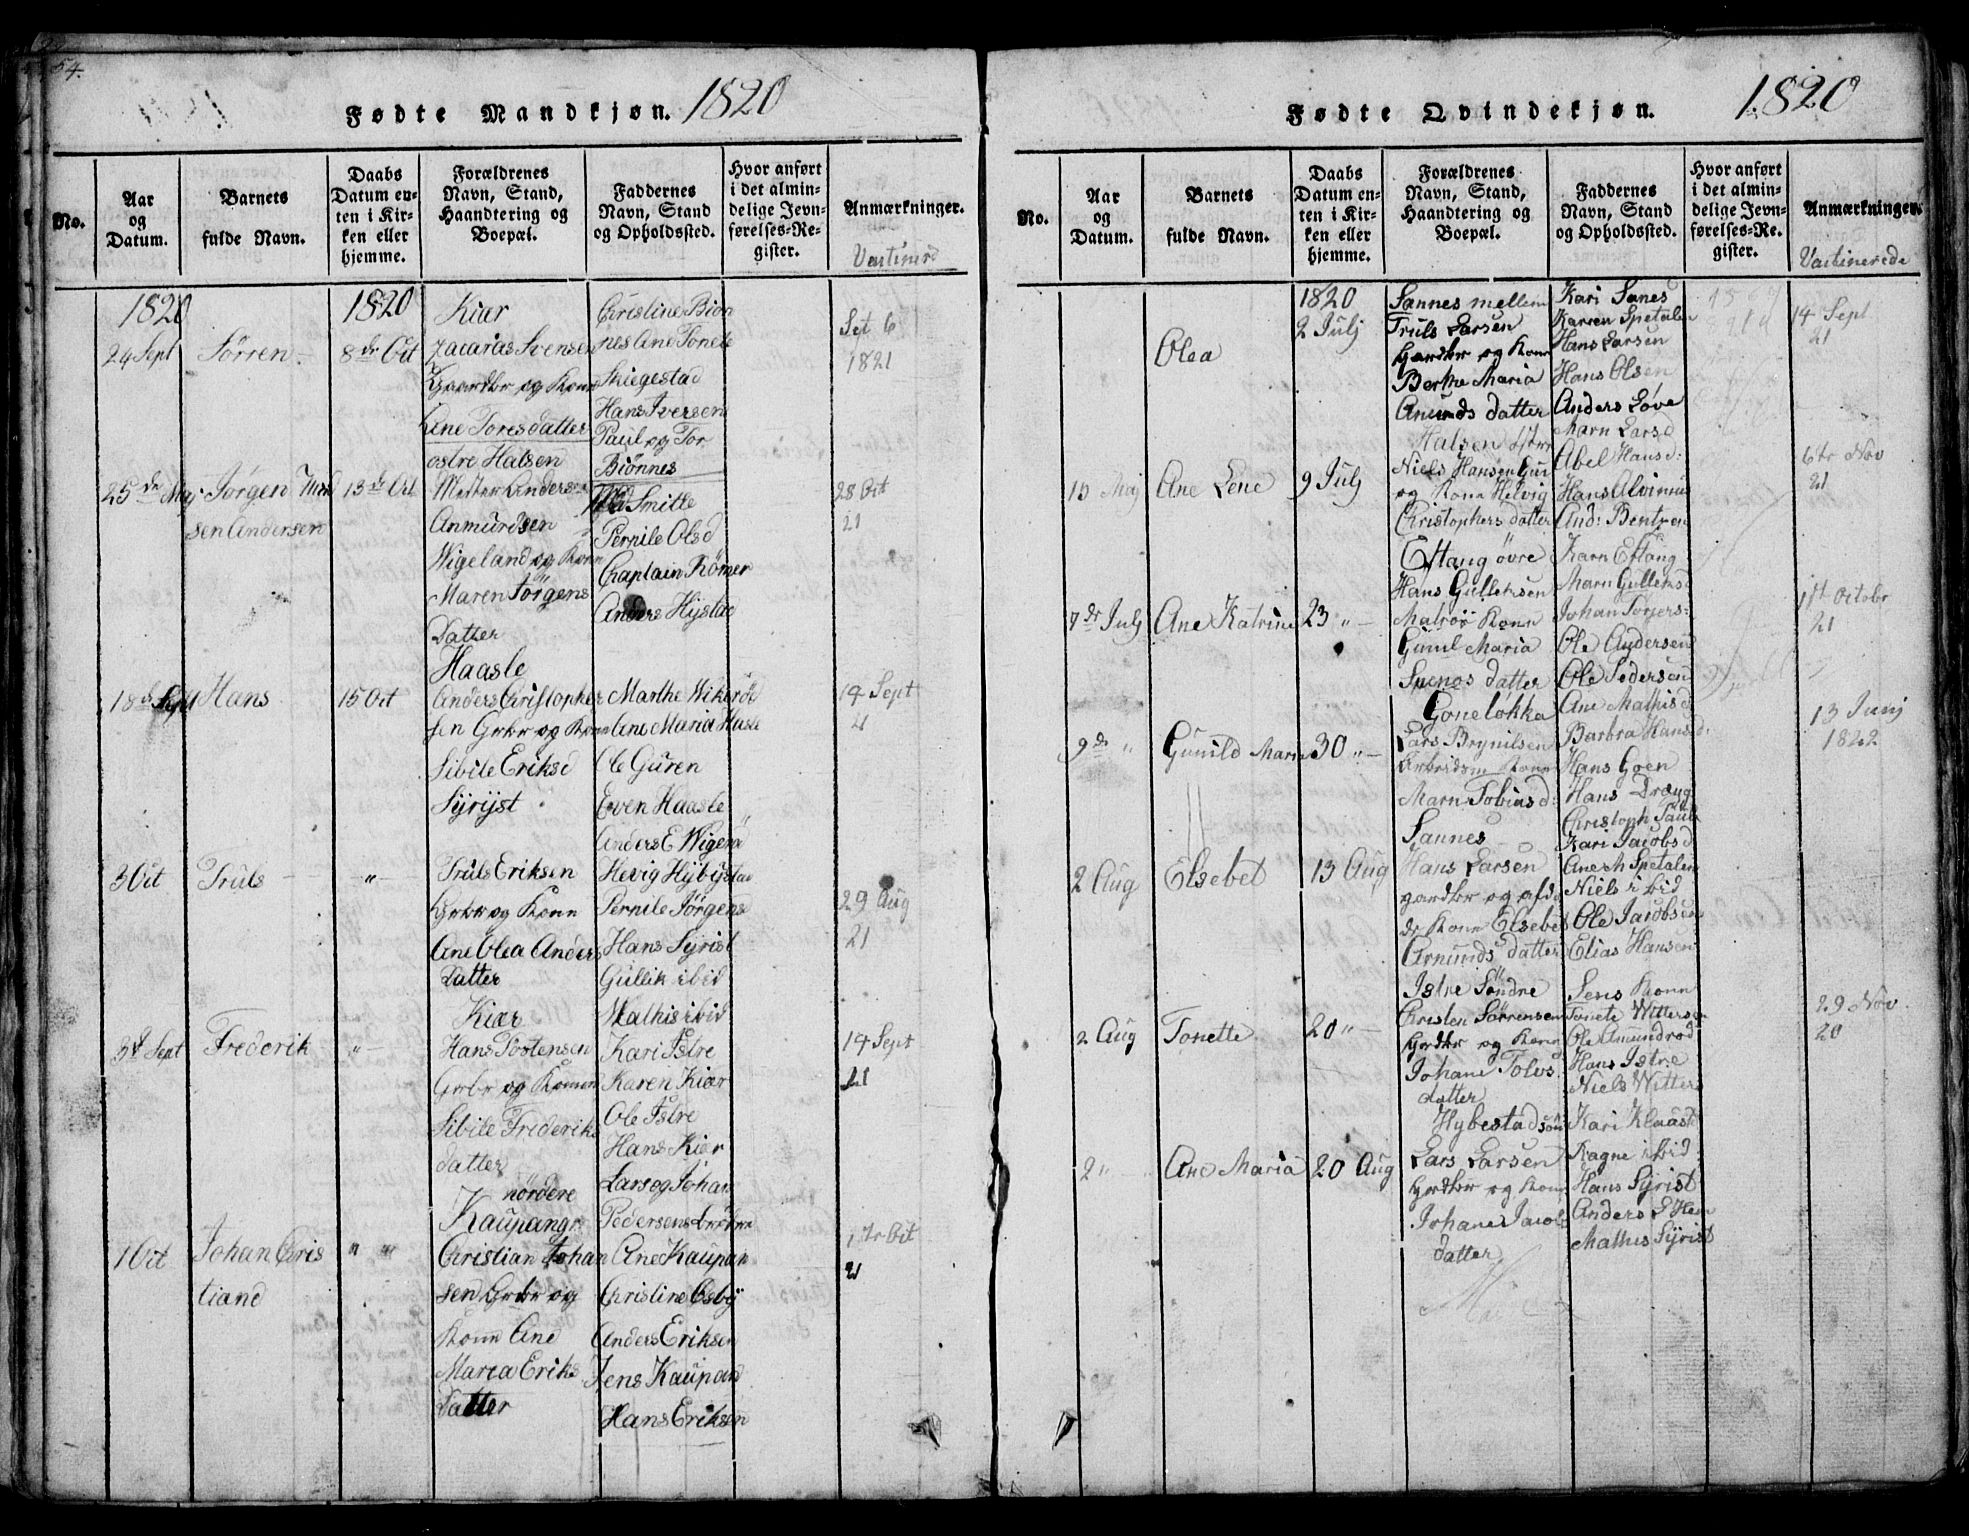 54.
Fødte Mandkjøn. 1820
No.
Aar og Datum.
Barnets fulde Navn.
Daabs Datum enten i Kirken eller hjemme.
Forældrenes Navn, Stand, Haandtering og Boepæl.
Faddernes Navn, Stand og Opholdssted.
Hvor anført i det almindelige Jevnførelses-Register.
Anmærkninger.
Vactinerd
1820
24 Sept
Sørren
1820
8de Oct
Kiær
Zacarias Svensen
Gaardbr og Konn
Ane Toresdatter
Christine Biön
nes Ane Tonete
Skiegestad
Hans Iversen
Paul og Tor
Biönnes
Set 6
1821
25de Maj
Jørgen Mad
sen Andersen
13de Oct
ostre Halsen
Anmundsen
Wigeland og Konn
Maren Jörgens
Datter
Smitte
Pernile Olsd
Chaplain Römer
Anders Hystad
28 Oct
21
18de Sept
Hans
15 Oct
Haasle
Anders Christopher
sen Grbr og Konn
Sibile Eriksd
Marthe Wikeröd
Ane Maria Hasle
Ole Guren
Even Haasle
Anders E Wigerød
14 Sept
21
3 Oct
Truls
"
Syrijst
Truls Eriksen
Grbr og Konn
Ane Olea Anders
Datter
Hevig Hybystad
Pernile Jörgens
Hans Syrist
Gullik ibid
Mathis ibid
29 Aug
21
Sept
Frederik
"
Kiær
Hans Tostensen
Grbr og Konen
Sibile Frederiks
datter
Kari Istre
Karen Kiær
Ole Istre
Hans Kiær
Lars og Johan
14 Sept
21
1 Oct
Johan Chris
tiand
" "
nördere
Kaupang
Christian Johan
sen Grbr og
Konn Ane
Maria Eriks
Datter
Pedersens
Ane Kaupan
Christine Osby
Anders Eriksen
Jens Kaupand
Hans Eriksen
1 Oct
21
Fødte Qvindekjøn. 1820
No.
Aar og Datum.
Barnets fulde Navn.
Daabs Datum enten i Kirken eller hjemme.
Forældrenes Navn, Stand, Haandtering og Boepæl.
Faddernes Navn, Stand og Opholdssted.
Hvor anført i det almindelige Jevnførelses-Register.
Anmærkninger.
Vactinerede
Olea
1820
2 Julj
Sannes mellem
Truls Larsen
Gardbr og Konn
Berthe Maria
Anunds datter
Kari Sanes
Karren Spetalen
Hans Larsen
Hans Olsen
Anders Löve
14 Sept
21
15 Maj
Ane Lene
9 Julj
Halsen
Niels Hansen
og Kone Helvig
Christophers datter
Marn Larsd
Abel Hansd:
Hans
And: Bentsen
6te Nov
21
7de Julj
Ane Katrine
23 "
Eftang övre
Hans Gulleksen
Matröö Konn
Gunil Maria
datter
Karn Eftang
Marn Gulleks
Johan Torjers
Ole Andersen
Ole Pedersen
1st Octobr
21
9de "
Gunild Marn
30 "
Goneløkka
Lars Brynilsen
Arbeidsm Konn
Marn Tobiasd:
Ane Mathisd
Barbra Hansd:
Hans Goen
Hans Dræng
13 Junj
1822
2 Aug
Elsebet
13 Aug
Sannes
Hans Larsen
gardbr og afdø
de Kone Elsebet
Amunds datter
Christoph
Kari Jacobsd
Ane M Spetalen
Niels ibid
Ole Jacobsen
Elias Hansen
2 Aug
Tonette
20 "
Istre Söndre
Christen Sörrensen
Gardbr og Konn
Johane Tolvs
datter
Jens Konn
Tonete Witterso
Ole Amundrød
Hans Istre
Niels Witters
29 Nov
20
2 "
Ane Maria
20 Aug
Hybestad
Lars Larsen
Gardbr og Konn
Johane Jacobs
datter
Kari Klaastd
Ragne ibid
Hans Syrist
Anders
Mathis Syrist